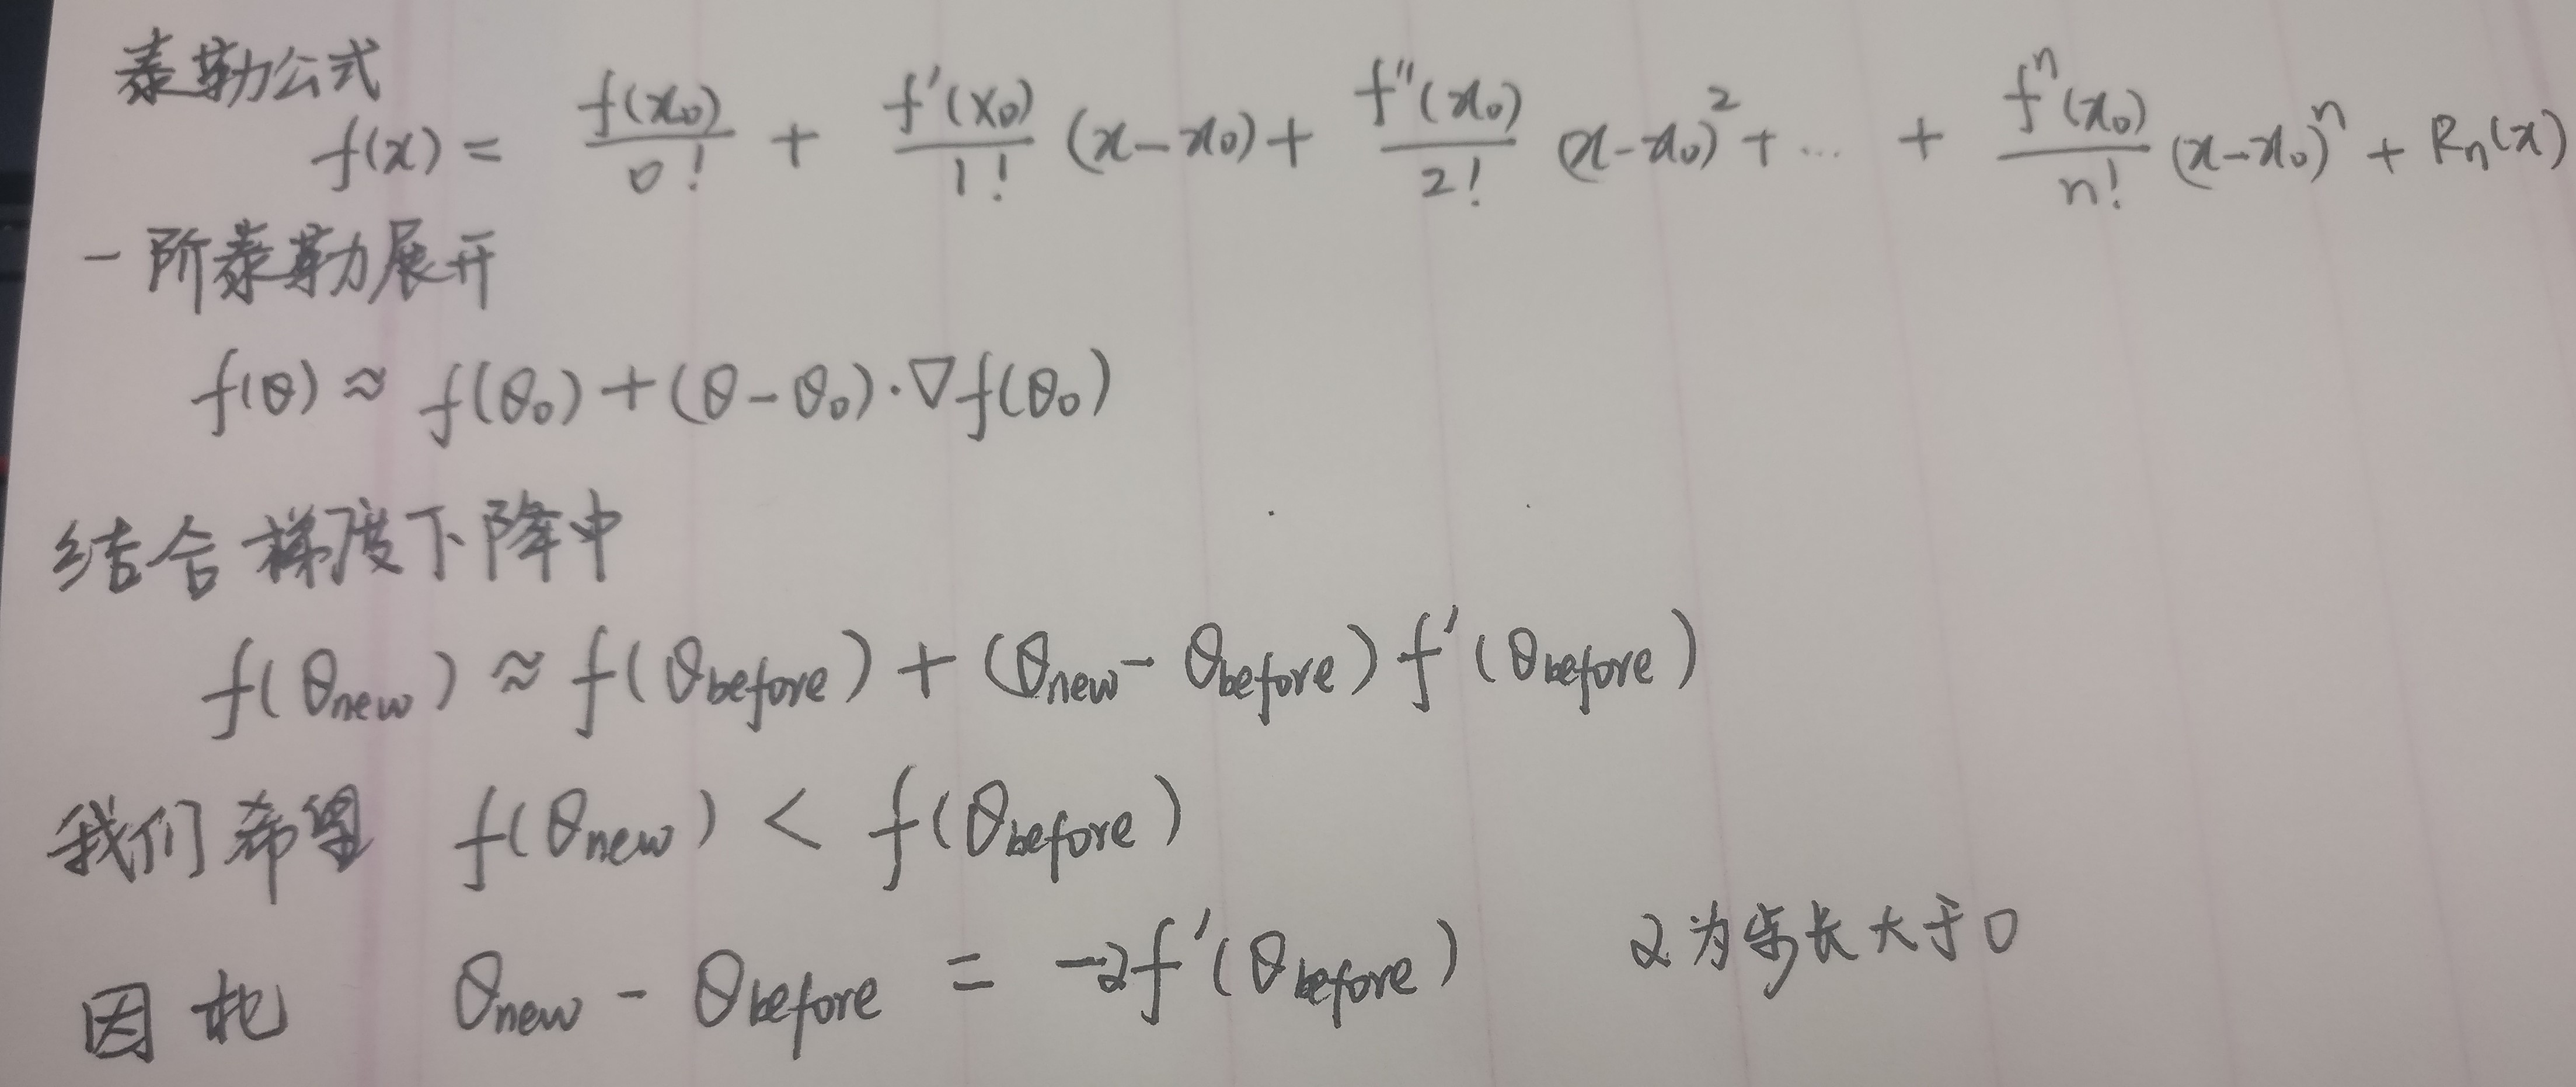 泰勒公式
f(x) = f(x₀)/0! + f′(x₀)/1! (x-x₀) + f″(x₀)/2! (x-x₀)² + … + fⁿ(x₀)/n! (x-x₀)ⁿ + Rₙ(x)
一阶泰勒展开
f(θ) ≈ f(θ₀) + (θ-θ₀)·∇f(θ₀)
结合梯度下降中
f(θnew) ≈ f(θbefore) + (θnew - θbefore) f′(θbefore)
我们希望 f(θnew) < f(θbefore)
因此 θnew - θbefore = -αf′(θbefore) α为步长大于0